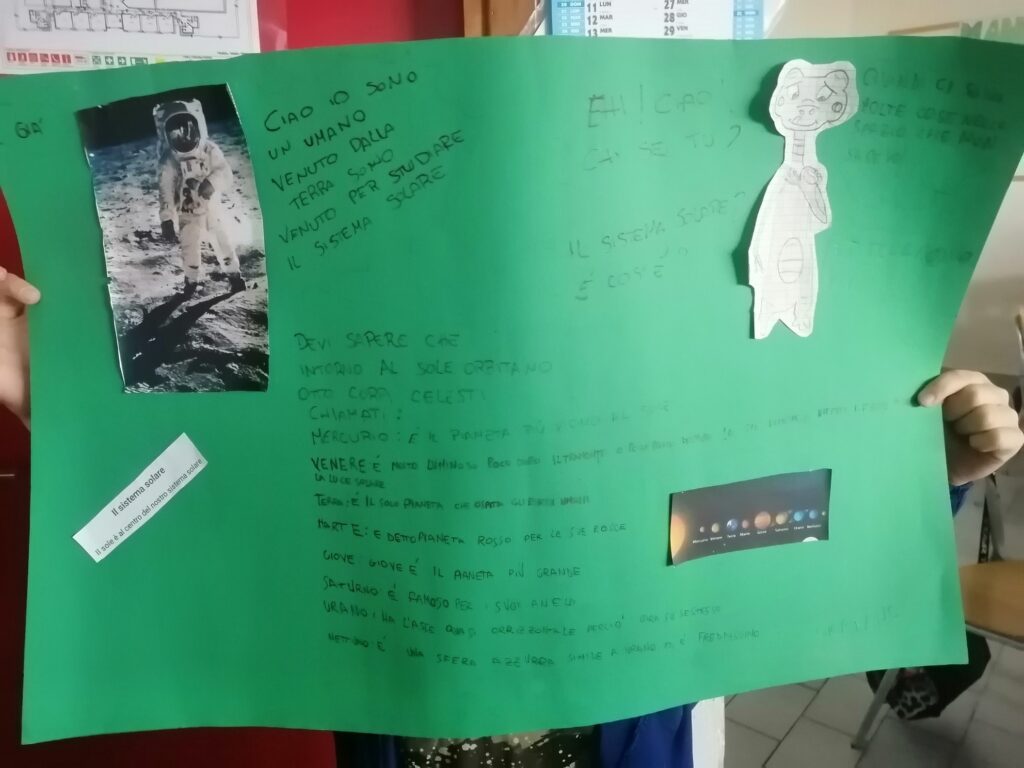 GIÀ
CIAO IO SONO
UN UMANO
VENUTO DALLA
TERRA SONO
VENUTO PER STUDIARE
IL SISTEMA SOLARE
EHI! CIAO!
CHI SE TU?
IL SISTEMA SOLARE?
È COS'È
QUINDI CI SONO
MOLTE COSE NELLO
SPAZIO CHE NON
SAPEVO!
DEVI SAPERE CHE
INTORNO AL SOLE ORBITANO
OTTO CORPI CELESTI
CHIAMATI:
MERCURIO: È IL PIANETA PIÙ VICINO AL SOLE
VENERE È MOLTO LUMINOSO POCO DOPO IL TRAMONTO O
LA LUCE SOLARE
TERRA: È IL SOLO PIANETA CHE OSPITA GLI ESSERI UMANI
MARTE: È DETTO PIANETA ROSSO PER LE SUE ROCCE
GIOVE GIOVE È IL PIANETA PIÙ GRANDE
SATURNO: È FAMOSO PER I SUOI ANELLI
URANO: HA L'ASSE QUASI ORRIZZONTALE PERCIÒ GIRA SU SE STESSO
NETTUNO: È UNA SFERA AZZURRA SIMILE A URANO ED È FREDDISSIMO
Il sistema solare
Il sole è al centro del nostro sistema solare
Mercurio Venere Terra Marte Giove Saturno Urano Nettuno
11 LUN
12 MAR
13 MER
27 MER
28 GIO
29 VEN